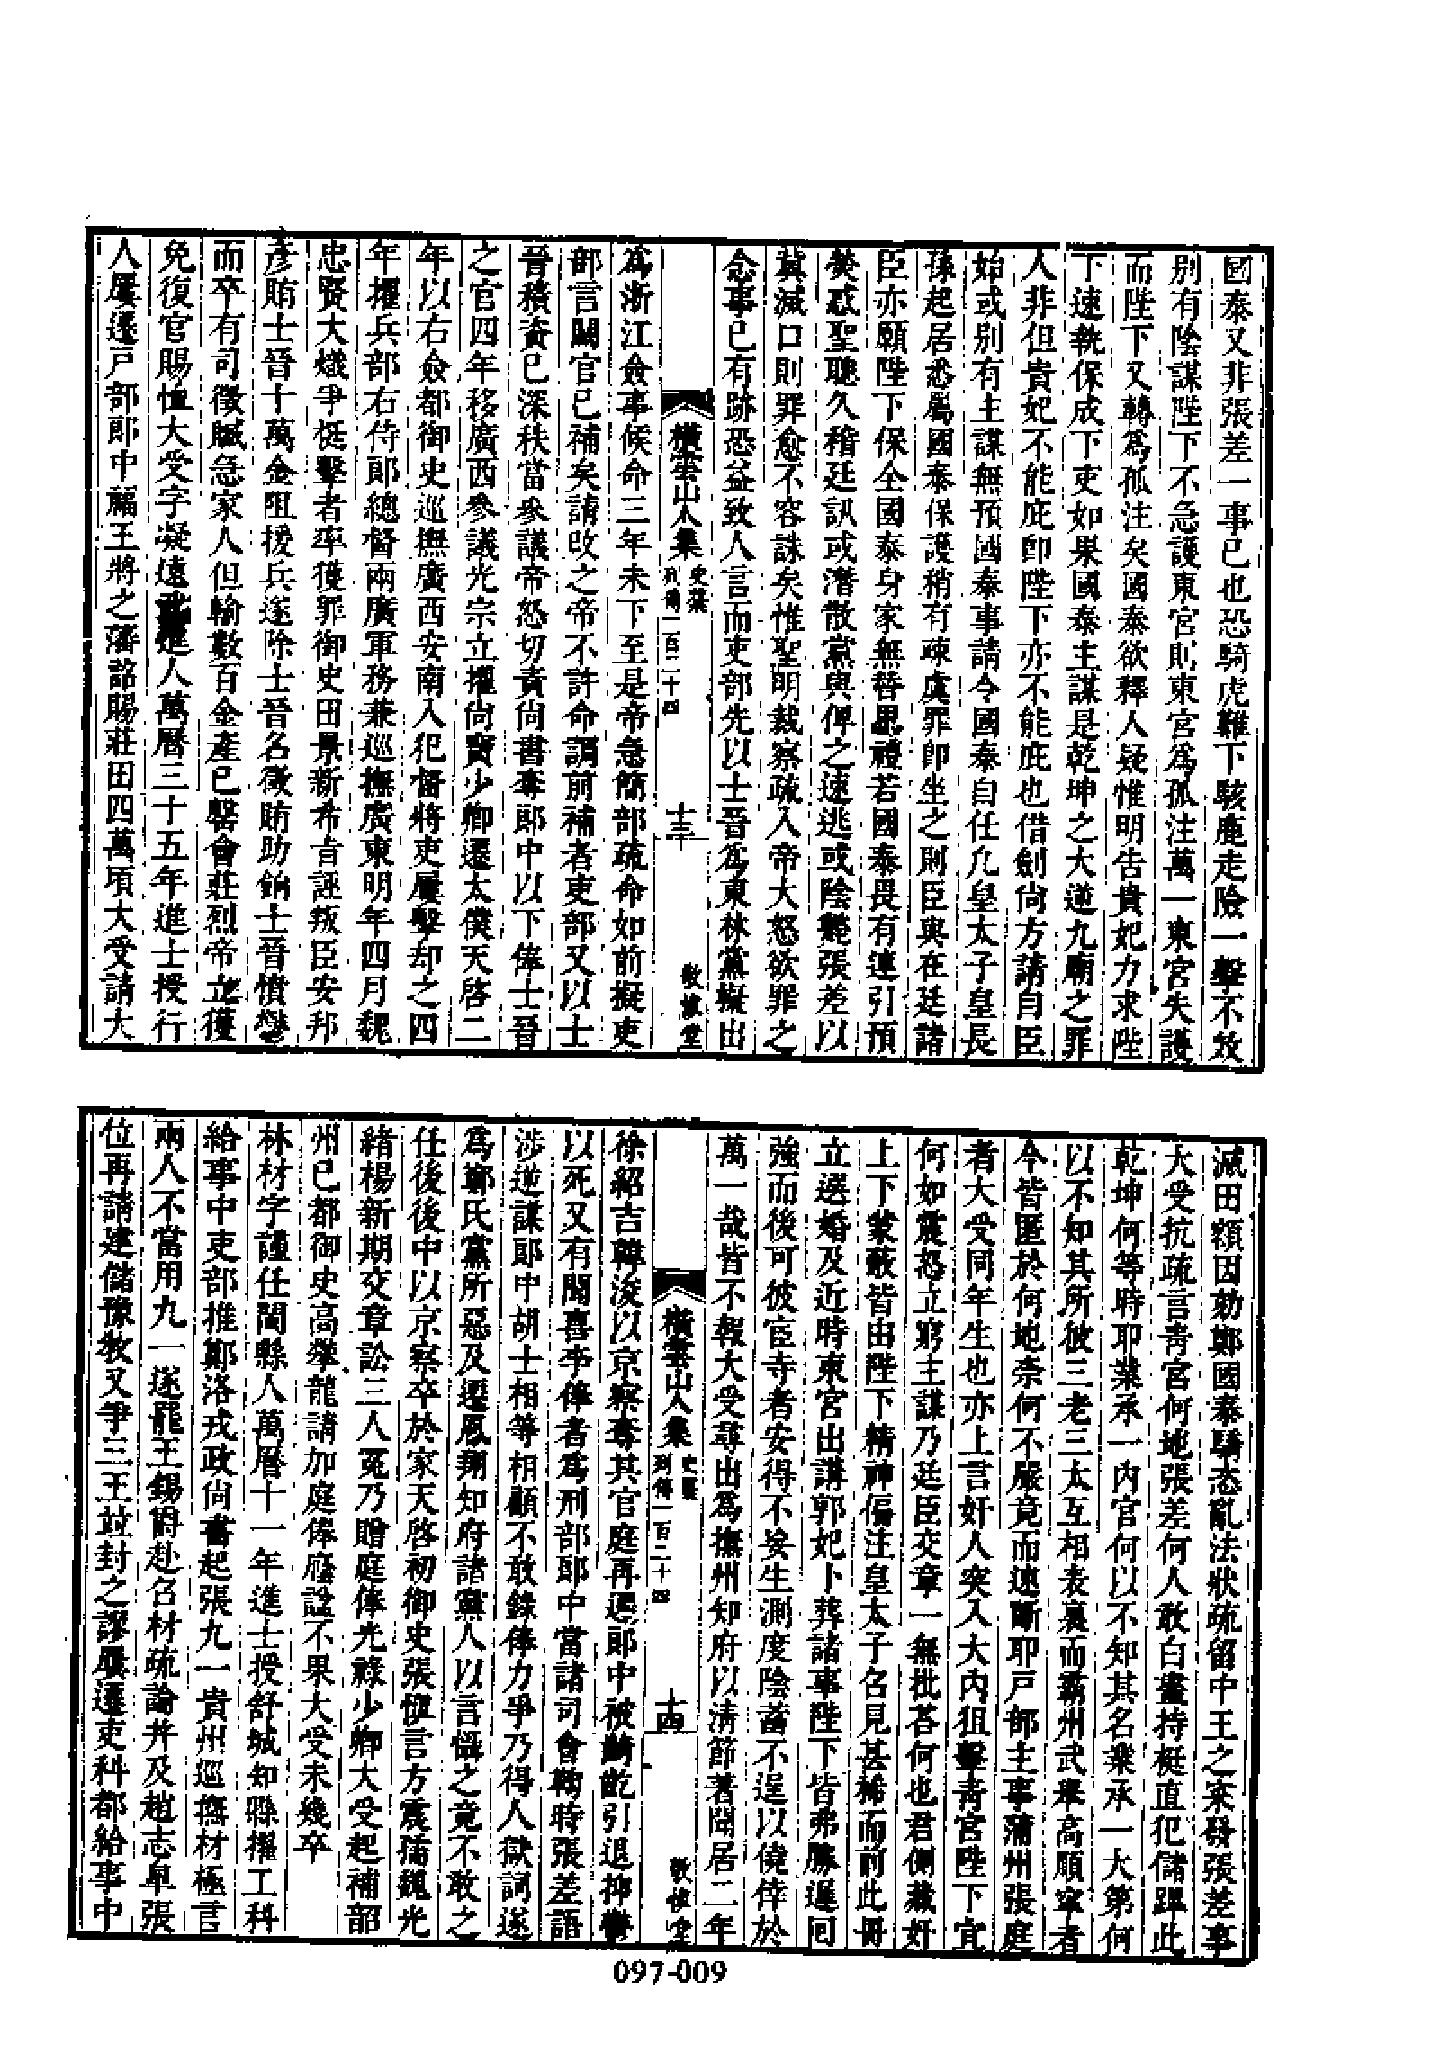 國泰又非張差一事已也恐騎虎難下駭鹿走險一擊不效
別有陰謀陛下不急護東宮則東宮為孤注萬一東宮失護
而陛下又轉為孤注矣國泰欲釋人疑惟明告貴妃力求陛
下速執保成下吏如果國泰主謀是乾坤之大逆九廟之罪
人非但貴妃不能庇卽陛下亦不能庇也借劍尙方請自臣
始或別有主謀無預國泰事請令國泰自任凡皇太子皇長
孫起居悉屬國泰保護稍有疎虞罪卽坐之則臣與在廷諸
臣亦願陛下保全國泰身家無替恩禮若國泰畏有連引預
熒惑聖聰久稽廷訊或潛散黨與俾之速逃或陰斃張差以
冀滅口則罪愈不容誅矣惟聖明裁察疏入帝大怒欲罪之
念事已有跡恐益致人言而吏部先以士晉為東林黨擬出
橫雲山人集 史藁 列傳一百二十四 十三 敬慎堂
為浙江僉事候命三年未下至是帝急簡部疏命如前擬吏
部言闕官已補矣請改之帝不許命調前補者吏部又以士
晉積資已深秩當參議帝怒切責尙書奪郎中以下俸士晉
之官四年移廣西參議光宗立擢尙寶少卿遷太僕天啓二
年以右僉都御史巡撫廣西安南入犯督將吏屢擊却之四
年擢兵部右侍郎總督兩廣軍務兼巡撫廣東明年四月魏
忠賢大熾爭梃擊者率獲罪御史田景新希旨誣叛臣安邦
彥賄士晉十萬金阻援兵遂除士晉名徵賄助餉士晉憤鬱
而卒有司徵贓急家人但輸數百金產已罄會莊烈帝立獲
免復官賜恤大受字凝遠武進人萬曆三十五年進士授行
人屢遷戶部郎中福王將之藩詔賜莊田四萬頃大受請大
減田額因劾鄭國泰驕恣亂法狀疏留中王之寀發張差事
大受抗疏言靑宮何地張差何人敢白晝持梃直犯儲蹕此
乾坤何等時耶業承一內官何以不知其名業承一大第何
以不知其所彼三老三太互相表裏而霸州武舉高順寧者
今皆匿於何地柰何不嚴竟而速斷耶戶部主事蒲州張庭
者大受同年生也亦上言奸人突入大內狙擊靑宮陛下宜
何如震怒立窮主謀乃廷臣交章一無批荅何也君側藏奸
上下蒙蔽皆由陛下精神偏注皇太子召見甚稀而前此冊
立選婚及近時東宮出講郭妃卜葬諸事陛下皆弗勝遲囘
強而後可彼宦寺者安得不妄生測度陰蓄不逞以僥倖於
萬一哉皆不報大受尋出為撫州知府以淸節著聞居二年
橫雲山人集 史藁 列傳一百二十四 十四 敬慎堂
徐紹吉韓浚以京察奪其官庭再遷郎中被齮齕引退抑鬱
以死又有聞喜李俸者為刑部郎中當諸司會鞫時張差語
涉逆謀郎中胡士相等相顧不敢錄俸力爭乃得入獄詞遂
為鄭氏黨所惡及遷鳳翔知府諸黨人以言懾之竟不敢之
任後後中以京察卒於家天啓初御史張愼言方震孺魏光
緒楊新期交章訟三人冤乃贈庭俸光祿少卿大受起補韶
州已都御史高攀龍請加庭俸廕謚不果大受未幾卒
林材字謹任閩縣人萬曆十一年進士授舒城知縣擢工科
給事中吏部推鄭洛戎政尙書起張九一貴州巡撫材極言
兩人不當用九一遂罷王錫爵赴召材疏論幷及趙志臯張
位再請建儲豫敎又爭三王並封之謬屢遷吏科都給事中
097-009